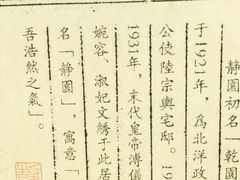 静園初名「乾園
于1921年，為北洋政
公使陸宗輿宅邸。19
1931年 末代皇帝溥儀
婉容、淑妃文绣于此居
名「静園」，寓意「
吾浩然之氣」。